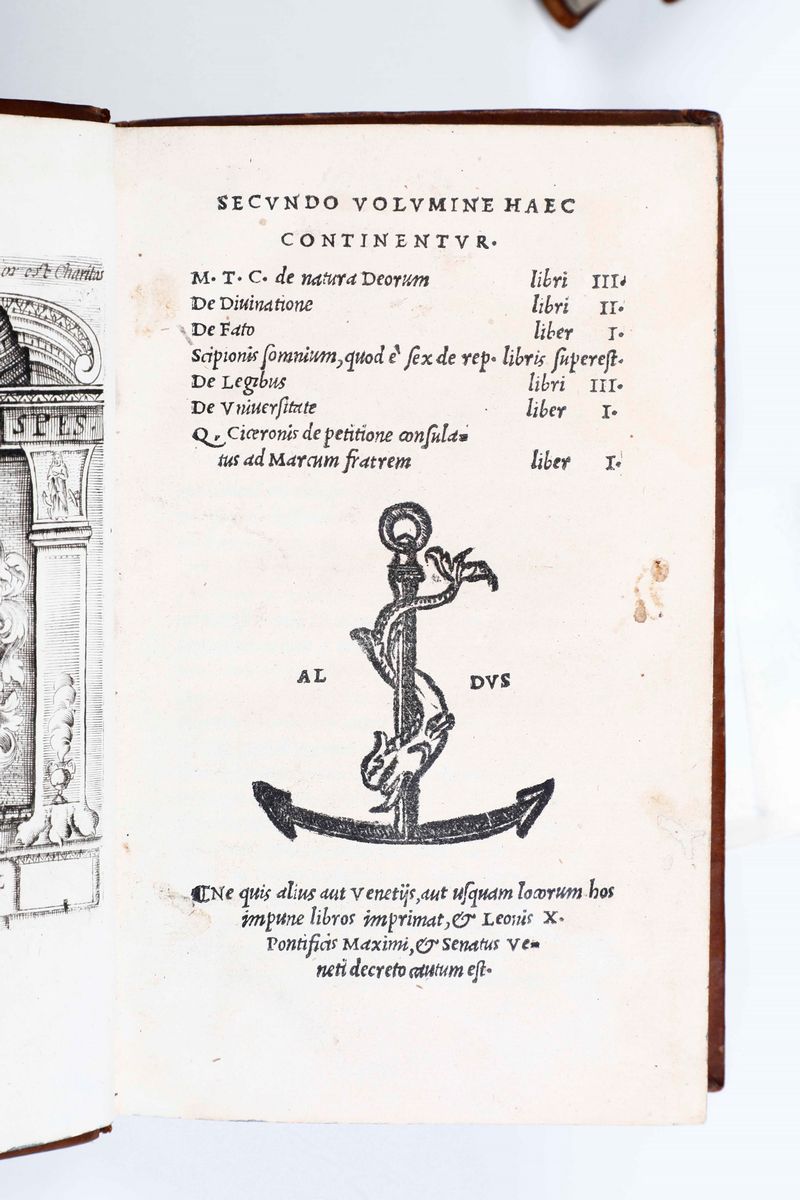 or est Charitas
SPES.
SECVNDO VOLVMINE HAEC
CONTINENTVR.
M. T. C. de natura Deorum libri III.
De Diuinatione libri II.
De Fato liber I.
Scipionis ſomnium, quod è ſex de rep. libris ſupereſt.
De Legibus libri III.
De Vniuerſitate liber I.
Q. Ciceronis de petitione conſula=
tus ad Marcum fratrem liber I.
AL DVS
¶Ne quis alius aut Venetijs, aut uſquam locorum hos
impune libros imprimat, & Leonis X.
Pontificis Maximi, & Senatus Ve=
neti decreto cautum eſt.